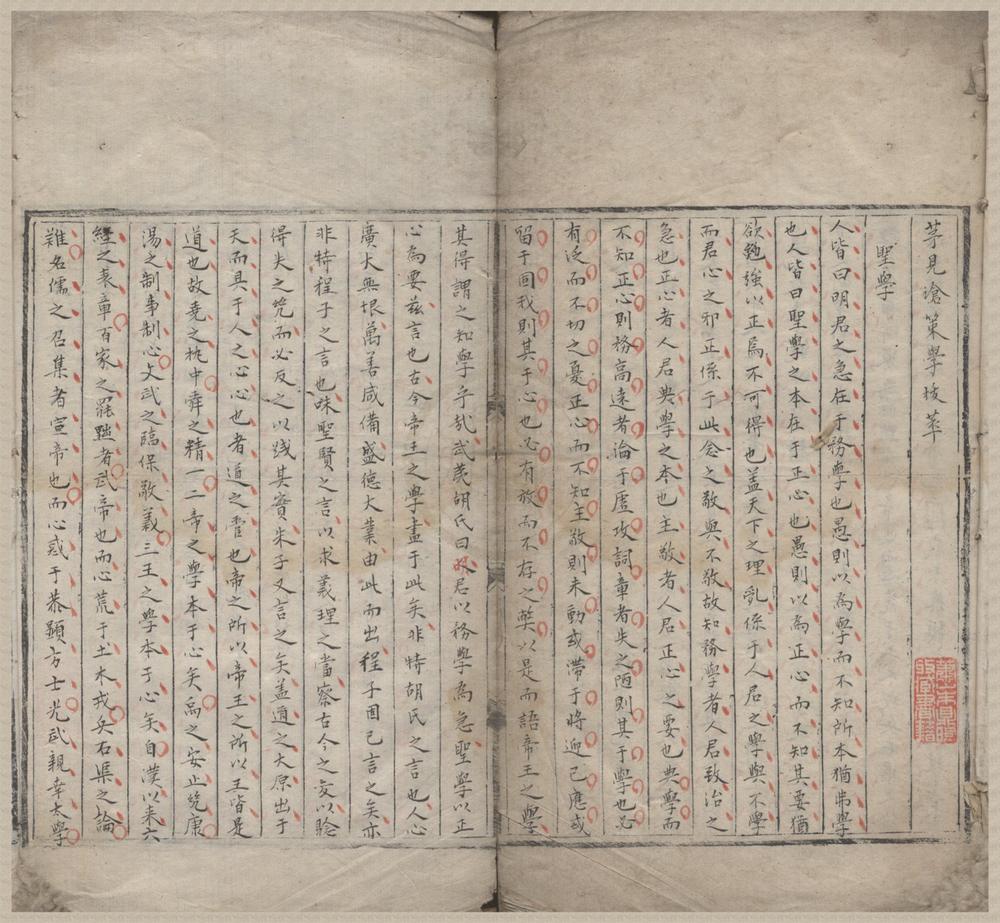 茅見滄策學拔萃
聖學
人皆曰明君之急在于務學也愚則以為學而不知所本猶弗學
也人皆曰聖學之本在于正心也愚則以為正心而不知其要猶
欲勉強以正焉不可得也盖天下之理乱係于人君之學與不學
而君心之邪正係于此念之敬與不敬故知務學者人君致治之
急也正心者人君典學之本也主敬者人君正心之要也典學而
不知正心則務高遠者淪于虛攻詞章者失之陋則其于學也必
有泛而不切之憂正心而不知主敬則未動或滯于將迎已應或
留于固我則其于心也必有放而不存之弊以是而語帝王之學
其得謂之知學乎哉武夷胡氏曰明君以務學為急聖學以正
心為要兹言也古今帝王之學盡于此矣非特胡氏之言也人心
廣大無垠萬善咸備盛德大業由此而出程子固已言之矣亦
非特程子之言也味聖賢之言以求義理之當察古今之変以驗
得失之㡬而必反之以踐其實朱子又言之矣盖道之大原出于
天而具于人之心心也者道之管也帝之所以帝王之所以王皆是
道也故堯之执中舜之精一二帝之學本于心矣禹之安止㡬康
湯之制事制心文武之臨保敬義三王之學本于心矣自漢以来六
經之表章百家之罷黜者武帝也而心荒于土木戎兵石渠之論
難名儒之召集者宣帝也而心惑于恭顯方士光武親幸太學